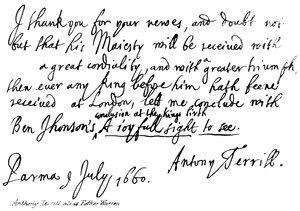 I thank you for your newes, and doubt not
but that his Majesty will be received with
a great cordiality, and with greater triumph,
then ever any king before him hath beene
received at London, let me conclude with
conclusion at the kings birth
Ben Jhonson's A ioyfull sight to see.
Antony Terrill.
Parma 9 July 1660.
Anthony Terrill alias Father Warren